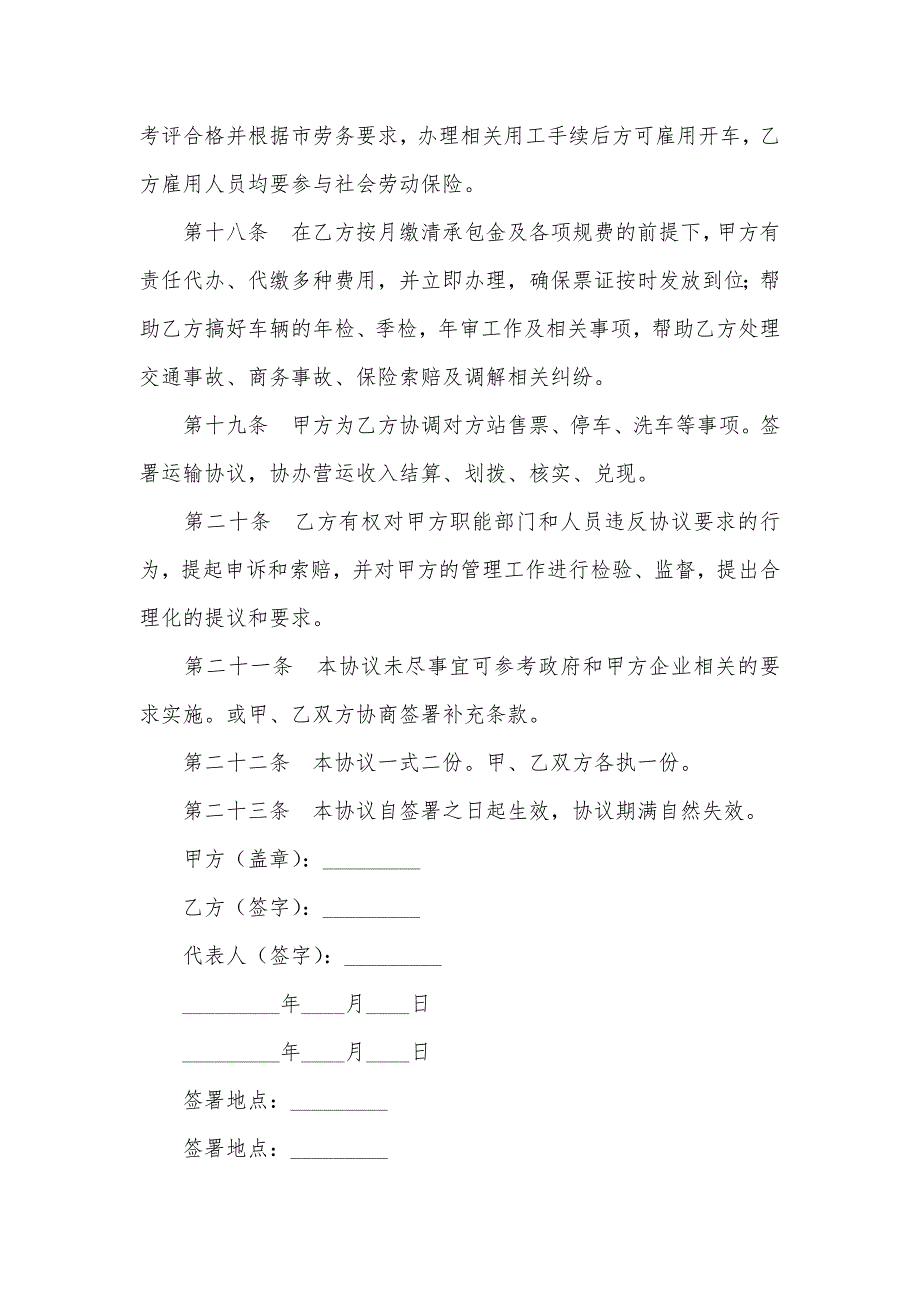 考评合格并根据市劳务要求，办理相关用工手续后方可雇用开车，乙
方雇用人员均要参与社会劳动保险。
第十八条　在乙方按月缴清承包金及各项规费的前提下，甲方有
责任代办、代缴多种费用，并立即办理，确保票证按时发放到位；帮
助乙方搞好车辆的年检、季检，年审工作及相关事项，帮助乙方处理
交通事故、商务事故、保险索赔及调解相关纠纷。
第十九条　甲方为乙方协调对方站售票、停车、洗车等事项。签
署运输协议，协办营运收入结算、划拨、核实、兑现。
第二十条　乙方有权对甲方职能部门和人员违反协议要求的行
为，提起申诉和索赔，并对甲方的管理工作进行检验、监督，提出合
理化的提议和要求。
第二十一条　本协议未尽事宜可参考政府和甲方企业相关的要
求实施。或甲、乙双方协商签署补充条款。
第二十二条　本协议一式二份。甲、乙双方各执一份。
第二十三条　本协议自签署之日起生效，协议期满自然失效。
甲方（盖章）：_________
乙方（签字）：_________
代表人（签字）：_________
_________年____月____日
_________年____月____日
签署地点：_________
签署地点：_________